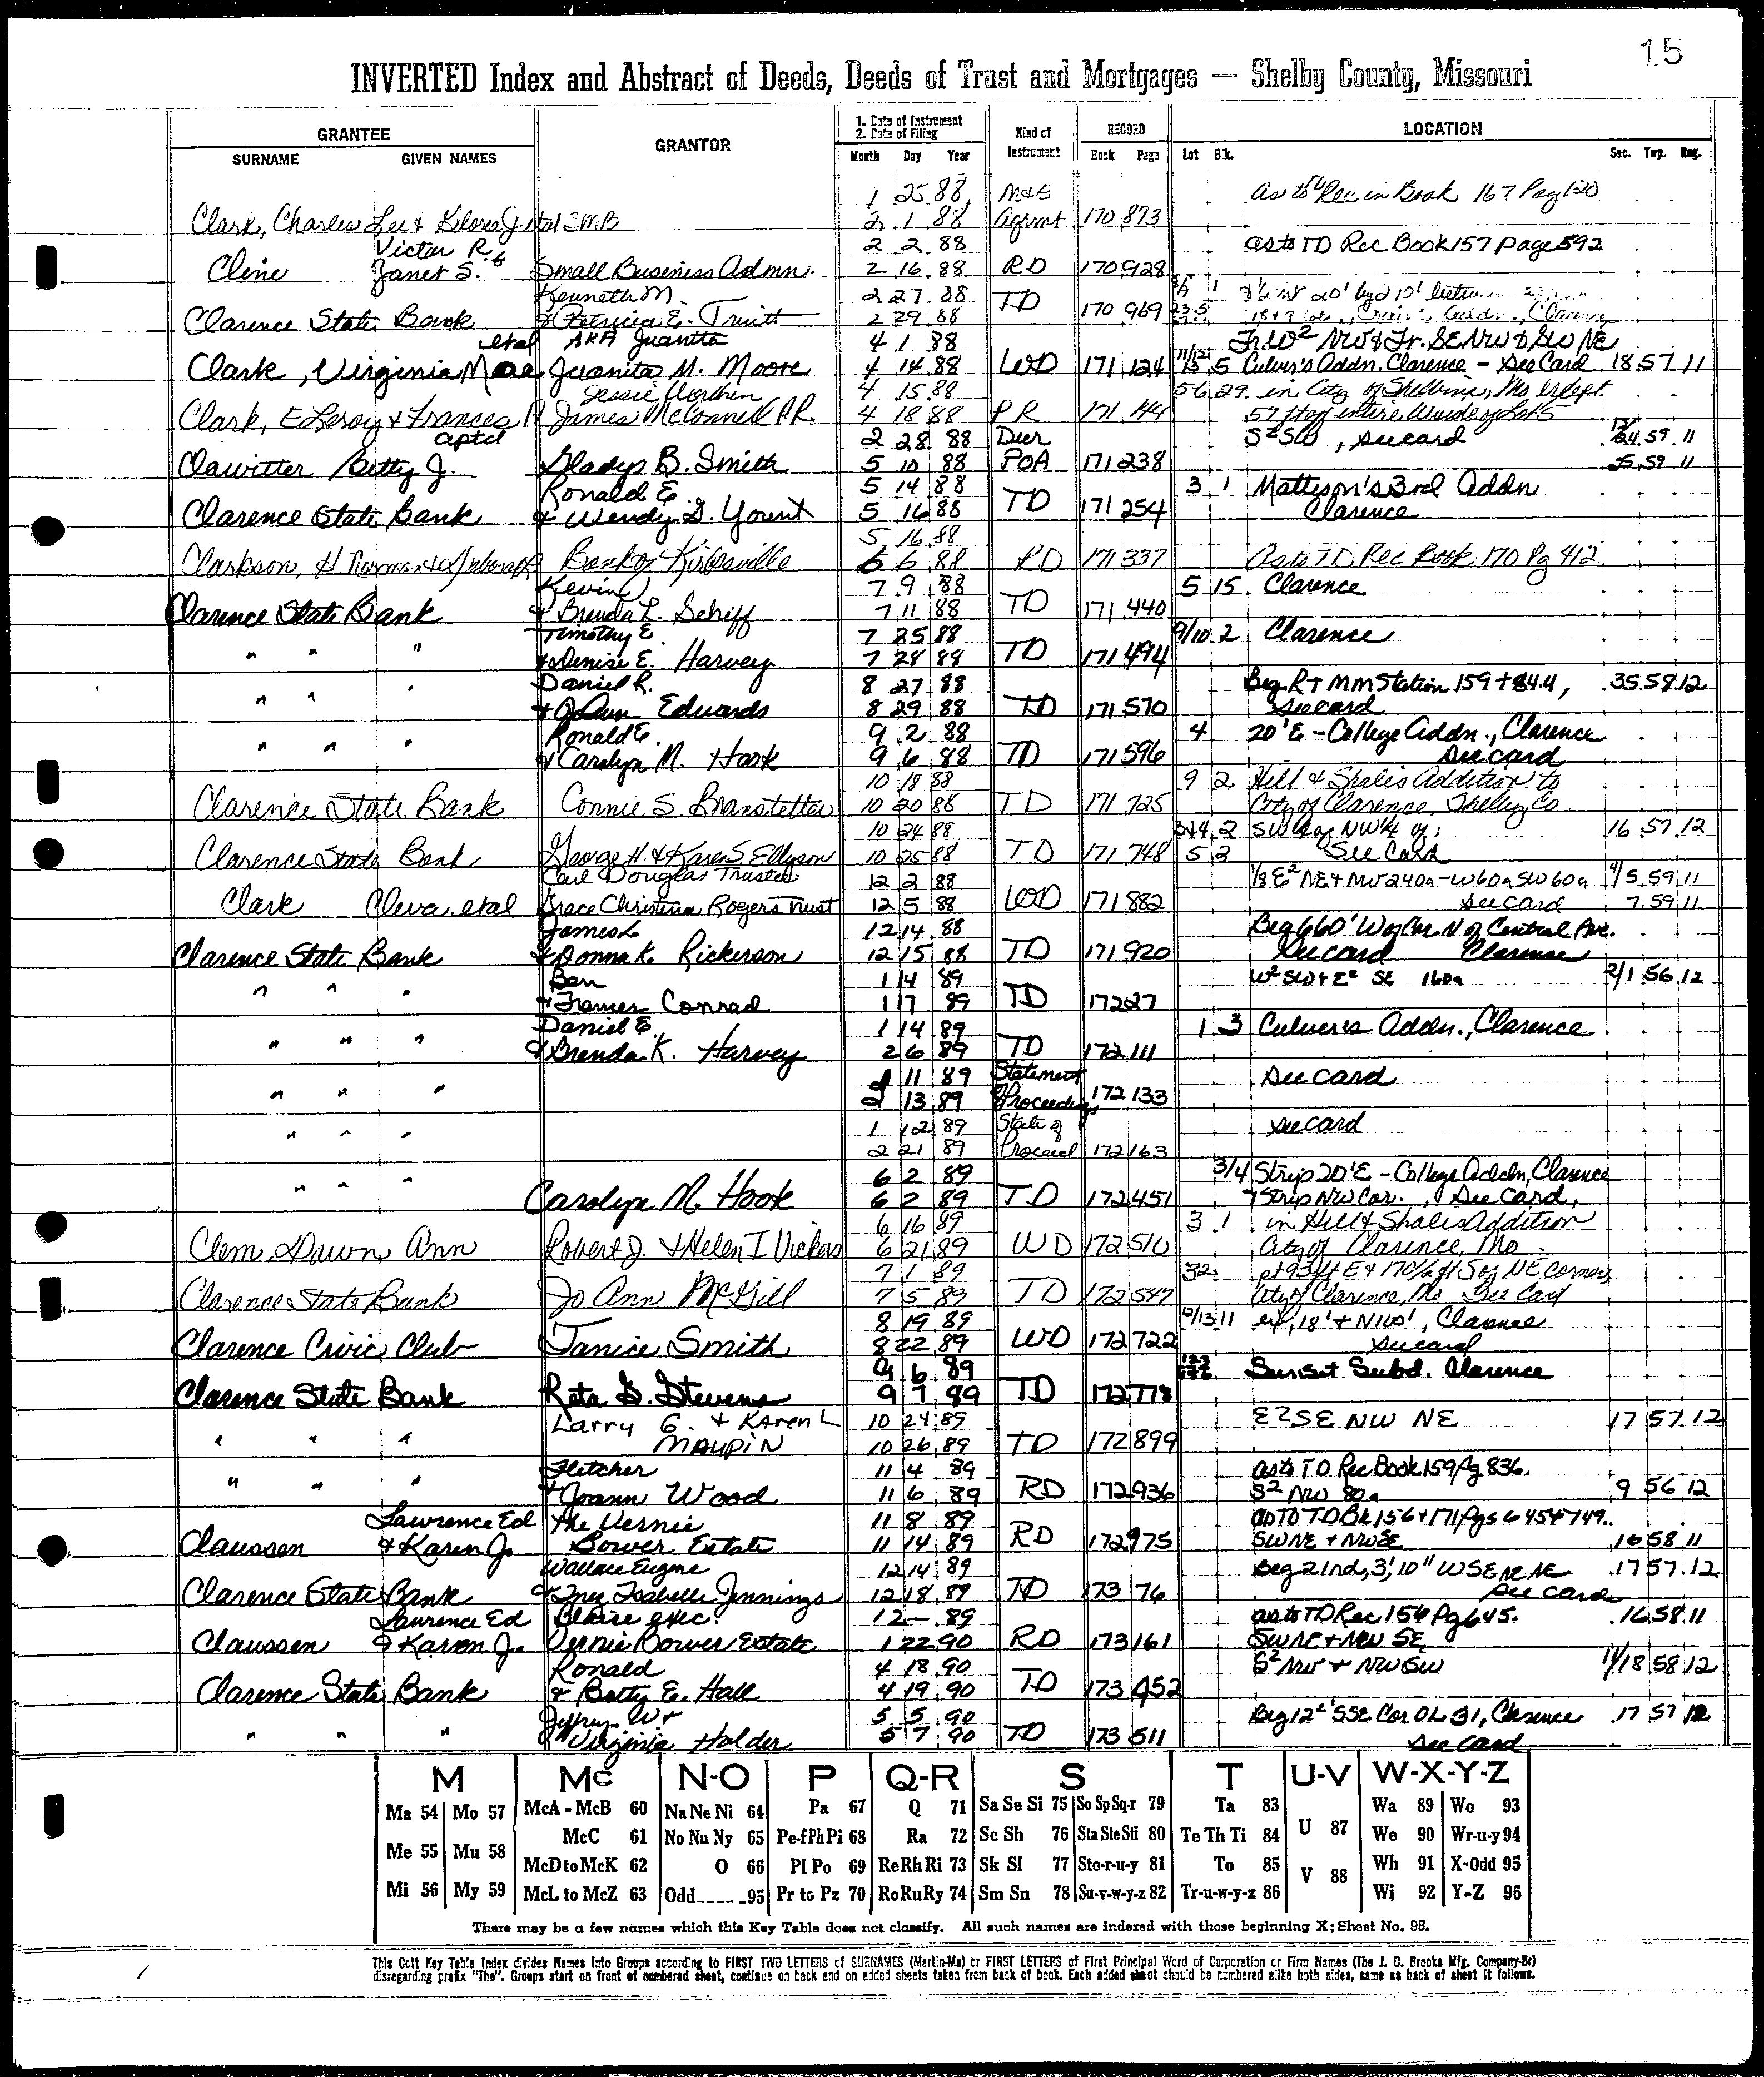 15
INVERTED Index and Abstract of Deeds, Deeds of Trust and Mortgages — Shelby County, Missouri
GRANTEE GRANTOR 1. Date of Instrument 2. Date of Filing Kind of Instrument RECORD LOCATION
SURNAME GIVEN NAMES Month Day Year Book Page Lot Blk. Sec. Twp. Rng.
1 25 88 M&E as to Rec in Book 167 Pag 120
Clark, Charles Lee & Gloria J. etal SMB 2 1 88 Agrmt 170 873
Victor R. & 2 2 88 as to TD Rec Book 157 page 592
Cline Janet S. Small Business Admn. 2 16 88 RD 170 928
Kenneth M. 2 27 88 TD 1 20' by 210' between
Clarence State Bank & Patricia E. Truitt 2 29 88 170 969 Addn., Clarence
etal AKA Juanita 4 1 88 Fr. W² NW & Fr. SE NW & SW NE
Clark, Virginia Mae Juanita M. Moore 4 14 88 WD 171 124 5 Culver's Addn. Clarence - See Card 18 57 11
Jessie Worthen 4 15 88 56 29 in City of Shelbina, Mo. Except
Clark, E Leroy & Frances H James McConnell P.R. 4 18 88 PR 171 144 57 ft of entire W side of Lot 5
aptd 2 28 88 Dur S² SW, see card 24 59 11
Clawitter Betty J. Gladys B. Smith 5 10 88 POA 171 238 25 59 11
Ronald E. 5 14 88 3 1 Mattison's 3rd Addn
Clarence State Bank & Wendy D. Yount 5 16 88 TD 171 254 Clarence
5 16 88
Clarkson, H. Norman & Deborah Bank of Kirksville 6 6 88 RD 171 337 As to TD Rec Book 170 Pg 412
Kevin 7 9 88 5 15 Clarence
Clarence State Bank & Brenda L. Schiff 7 11 88 TD 171 440
Timothy E. 7 25 88 9/10 2 Clarence
" " " & Denise E. Harvey 7 28 88 TD 171 494
Daniel R. 8 27 88 Beg Rt MM Station 159 + 84.4, 35 58 12
" " " & JoAnn Edwards 8 29 88 TD 171 570 See card
Ronald E. 9 2 88 4 20' E - College Addn., Clarence
" " " & Carolyn M. Hook 9 6 88 TD 171 596 See card
10 18 88 9 2 Hill & Shale's Addition to
Clarence State Bank Connie S. Branstetter 10 20 88 TD 171 725 City of Clarence, Shelby Co.
10 24 88 3&4 2 SW¼ of NW¼ of: 16 57 12
Clarence State Bank George H. & Karen S. Ellyson 10 25 88 TD 171 748 5 2 See Card
Carl Douglas Trustee 12 2 88 1/8 E² NE & NW 240a - W60a SW 60a 4/5 59 11
Clark Cleva etal Grace Christina Rogers Trust 12 5 88 WD 171 882 see card 7 59 11
James L 12 14 88 Beg 660' W of Cor. N of Central Ave.
Clarence State Bank & Donna K. Rickerson 12 15 88 TD 171 920 See card Clarence
Ben 1 14 89 W² SW & E² SE 160a 2/1 56 12
" " " & Frances Conrad 1 17 89 TD 172 27
Daniel E. 1 14 89 1 3 Culver's Addn., Clarence
" " " & Brenda K. Harvey 2 6 89 TD 172 111
2 11 89 Statement See card
" " " 2 13 89 of Proceedings 172 133
1 12 89 State of see card
" " " 2 21 89 Proceed 172 163
6 2 89 3/4 Strip 20' E - College Addn, Clarence
" " " Carolyn M. Hook 6 2 89 TD 172 451 7 Strip NW Cor., See Card,
6 16 89 3 1 in Hill & Shale's Addition
Clem, Dawn Ann Robert J. & Helen I Vickers 6 21 89 WD 172 510 City of Clarence, Mo
7 1 89 32 pt 93 ft E & 170 1/6 ft S of NE corner,
Clarence State Bank Jo Ann McGill 7 5 89 TD 172 547 City of Clarence, Mo See Card
8 19 89 12/13 11 ex, 18' & N100', Clarence
Clarence Civic Club Janice Smith 8 22 89 WD 172 722 see card
9 6 89 Sunset Subd. Clarence
Clarence State Bank Reta G. Stevens 9 7 89 TD 172 778
Larry G. & Karen L 10 24 89 E² SE NW NE 17 57 12
" " " MAUPIN 10 26 89 TD 172 899
Fletcher 11 4 89 as to TD Rec Book 159 Pg 836.
" " " & Joann Wood 11 6 89 RD 172 936 S² NW 80a 9 56 12
Lawrence Ed The Vernie 11 8 89 as to TD Bk 156 & 171 Pgs 645 & 749.
Claussen & Karen J. Bower Estate 11 14 89 RD 172 975 SW NE & NW SE 16 58 11
Wallace Eugene 12 14 89 Beg 21 rd, 3', 10" W SE NE NE 17 57 12
Clarence State Bank & Inez Isabelle Jennings 12 18 89 TD 173 76 See card
Lawrence Ed Blaise exec. 12 — 89 as to TD Rec 154 Pg 645. 16 58 11
Claussen & Karen J. Vernie Bower Estate 1 22 90 RD 173 161 SW NE & NW SE
Ronald 4 18 90 S² NW & NW SW 11/18 58 12
Clarence State Bank & Betty E. Hall 4 19 90 TD 173 452
Jeffrey W & 5 5 90 Beg 12² S SE Cor OL 31, Clarence 17 57 12
" " " Virginia Holder 5 7 90 TD 173 511 See Card
M Mc N-O P Q-R S T U-V W-X-Y-Z
Ma 54 Mo 57 McA - McB 60 Na Ne Ni 64 Pa 67 Q 71 Sa Se Si 75 So Sp Sq-r 79 Ta 83 U 87 Wa 89 Wo 93
Me 55 Mu 58 McC 61 No Nu Ny 65 Pe-f Ph Pi 68 Ra 72 Sc Sh 76 Sta Ste Sti 80 Te Th Ti 84 We 90 Wr-u-y 94
McD to McK 62 O 66 Pl Po 69 Re Rh Ri 73 Sk Sl 77 Sto-r-u-y 81 To 85 V 88 Wh 91 X-Odd 95
Mi 56 My 59 McL to McZ 63 Odd 95 Pr to Pz 70 Ro Ru Ry 74 Sm Sn 78 Su-v-w-y-z 82 Tr-u-w-y-z 86 Wi 92 Y-Z 96
There may be a few names which this Key Table does not classify. All such names are indexed with those beginning X; Sheet No. 95.
This Cott Key Table Index divides Names into Groups according to FIRST TWO LETTERS of SURNAMES (Martin-Ma) or FIRST LETTERS of First Principal Word of Corporation or Firm Names (The J. C. Brooks Mfg. Company-Br)
disregarding prefix "The". Groups start on front of numbered sheet, continue on back and on added sheets taken from back of book. Each added sheet should be numbered alike both sides, same as back of sheet it follows.